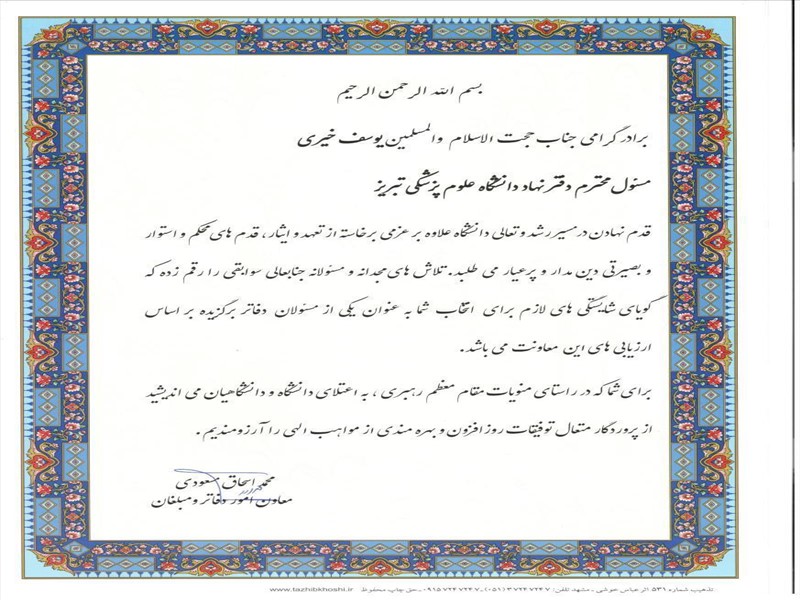 بسم الله الرحمن الرحیم
برادر گرامی جناب حجت الاسلام والمسلمین یوسف خیری
مسئول محترم دفتر نهاد دانشگاه علوم پزشکی تبریز
قدم نهادن در مسیر رشد و تعالی دانشگاه علاوه بر عزمی برخاسته از تعهد و ایثار، قدم های محکم و استوار
و بصیرتی دین مدار و پرعیار می طلبد. تلاش های مجدانه و مسئولانه جنابعالی سوابقی را رقم زده که
گویای شایستگی های لازم برای انتخاب شما به عنوان یکی از مسئولان دفاتر برگزیده بر اساس
ارزیابی های این معاونت می باشد.
برای شما که در راستای منویات مقام معظم رهبری، به اعتلای دانشگاه و دانشگاهیان می اندیشید
از پروردگار متعال توفیقات روز افزون و بهره مندی از مواهب الهی را آرزومندیم.
محمد اسحاق مسعودی
معاون امور دفاتر و مبلغان
تذهیب شماره ۵۳۱ اثر عباس خوشی - مشهد تلفن: ۳۷۲۴۷۲۴۷ (۰۵۱) - ۰۹۱۵۷۲۴۷۲۴۷ - حق چاپ محفوظ www.tazhibkhoshi.ir